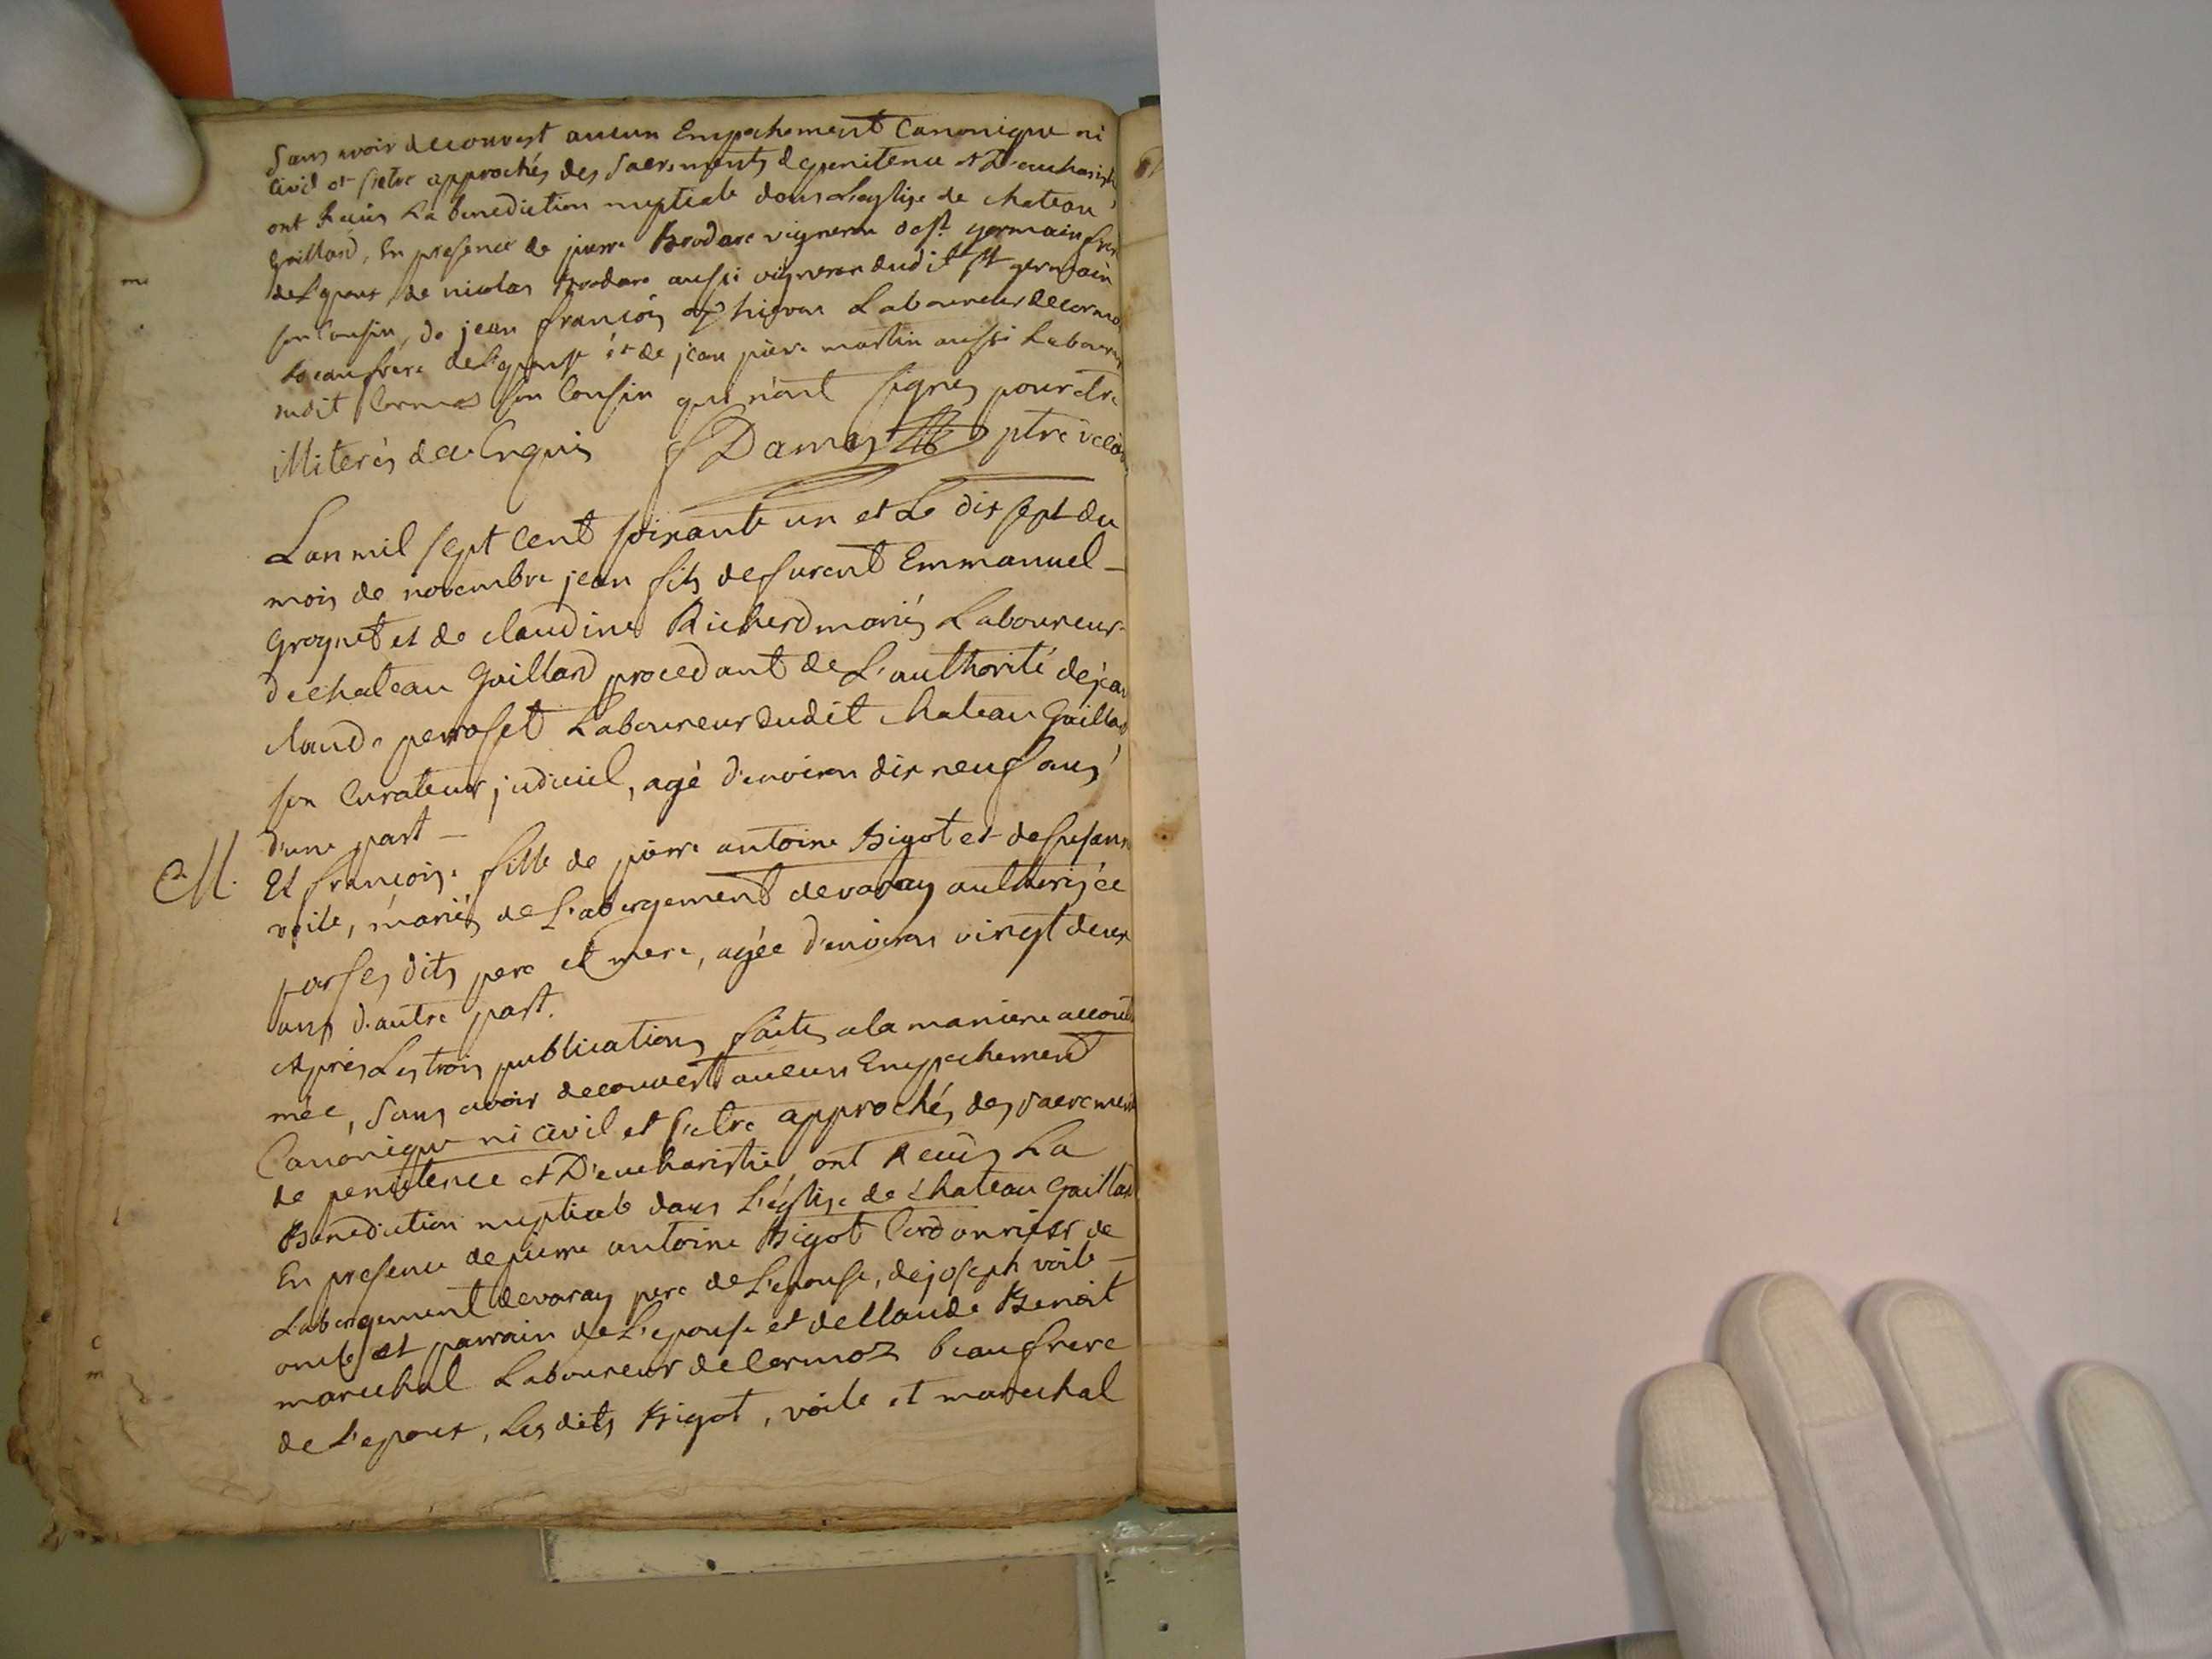 Sans avoir decouvert aucun Empechement Canonique ni
civil et s'etre approchés des Sacrements de penitence et D'eucharistie
ont Reçûs La benediction nuptiale dans L'eglise de chateau
Gaillard, En presence de pierre Brodare vigneron de st germain frere
de L'epoux de nicolas Brodare aussi vigneron dudit st germain
son Cousin, de jean françois Laboureur de cormo
beaufrere de L'epouse et de jean piere martin aussi Laboureur
dudit Cormoz son Cousin qui n'ont signés pour etre
illiterés de ce Enquis Damas ptre vicaire
L'an mil sept Cent soixante un et Le dix sept du
mois de novembre jean fils de furent Emmanuel
Grognet et de claudine Richerd mariés Laboureur
de chateau Gaillard procedant de L'authorité de jean
claude perroset Laboureur dudit chateau Gaillard
son Curateur judiciel, agé d'environ dix neuf ans
d'une part
M. Et françoise fille de pierre antoine Bigot et de susanne
voile, mariés de L'abergement de varay authorisée
par ses dits pere et mere, agée d'environ vingt deux
ans d'autre part.
Apres Les trois publications faites a la maniere accoutu
mée, Sans avoir decouvert aucun Empechement
Canonique ni civil et s'etre approchés des sacrements
de penitence et D'eucharistie, ont Reçûs La
Benediction nuptiale dans L'église de chateau Gaillard
En presence de pierre antoine Bigot Cordonnier de
L'abergement de varay pere de L'epouse, de joseph voile
oncle et parrain de L'epouse et de Claude Benoit
marechal Laboureur de Cermoz beaufrere
de L'epoux, Les dits Bigot, voile et marechal